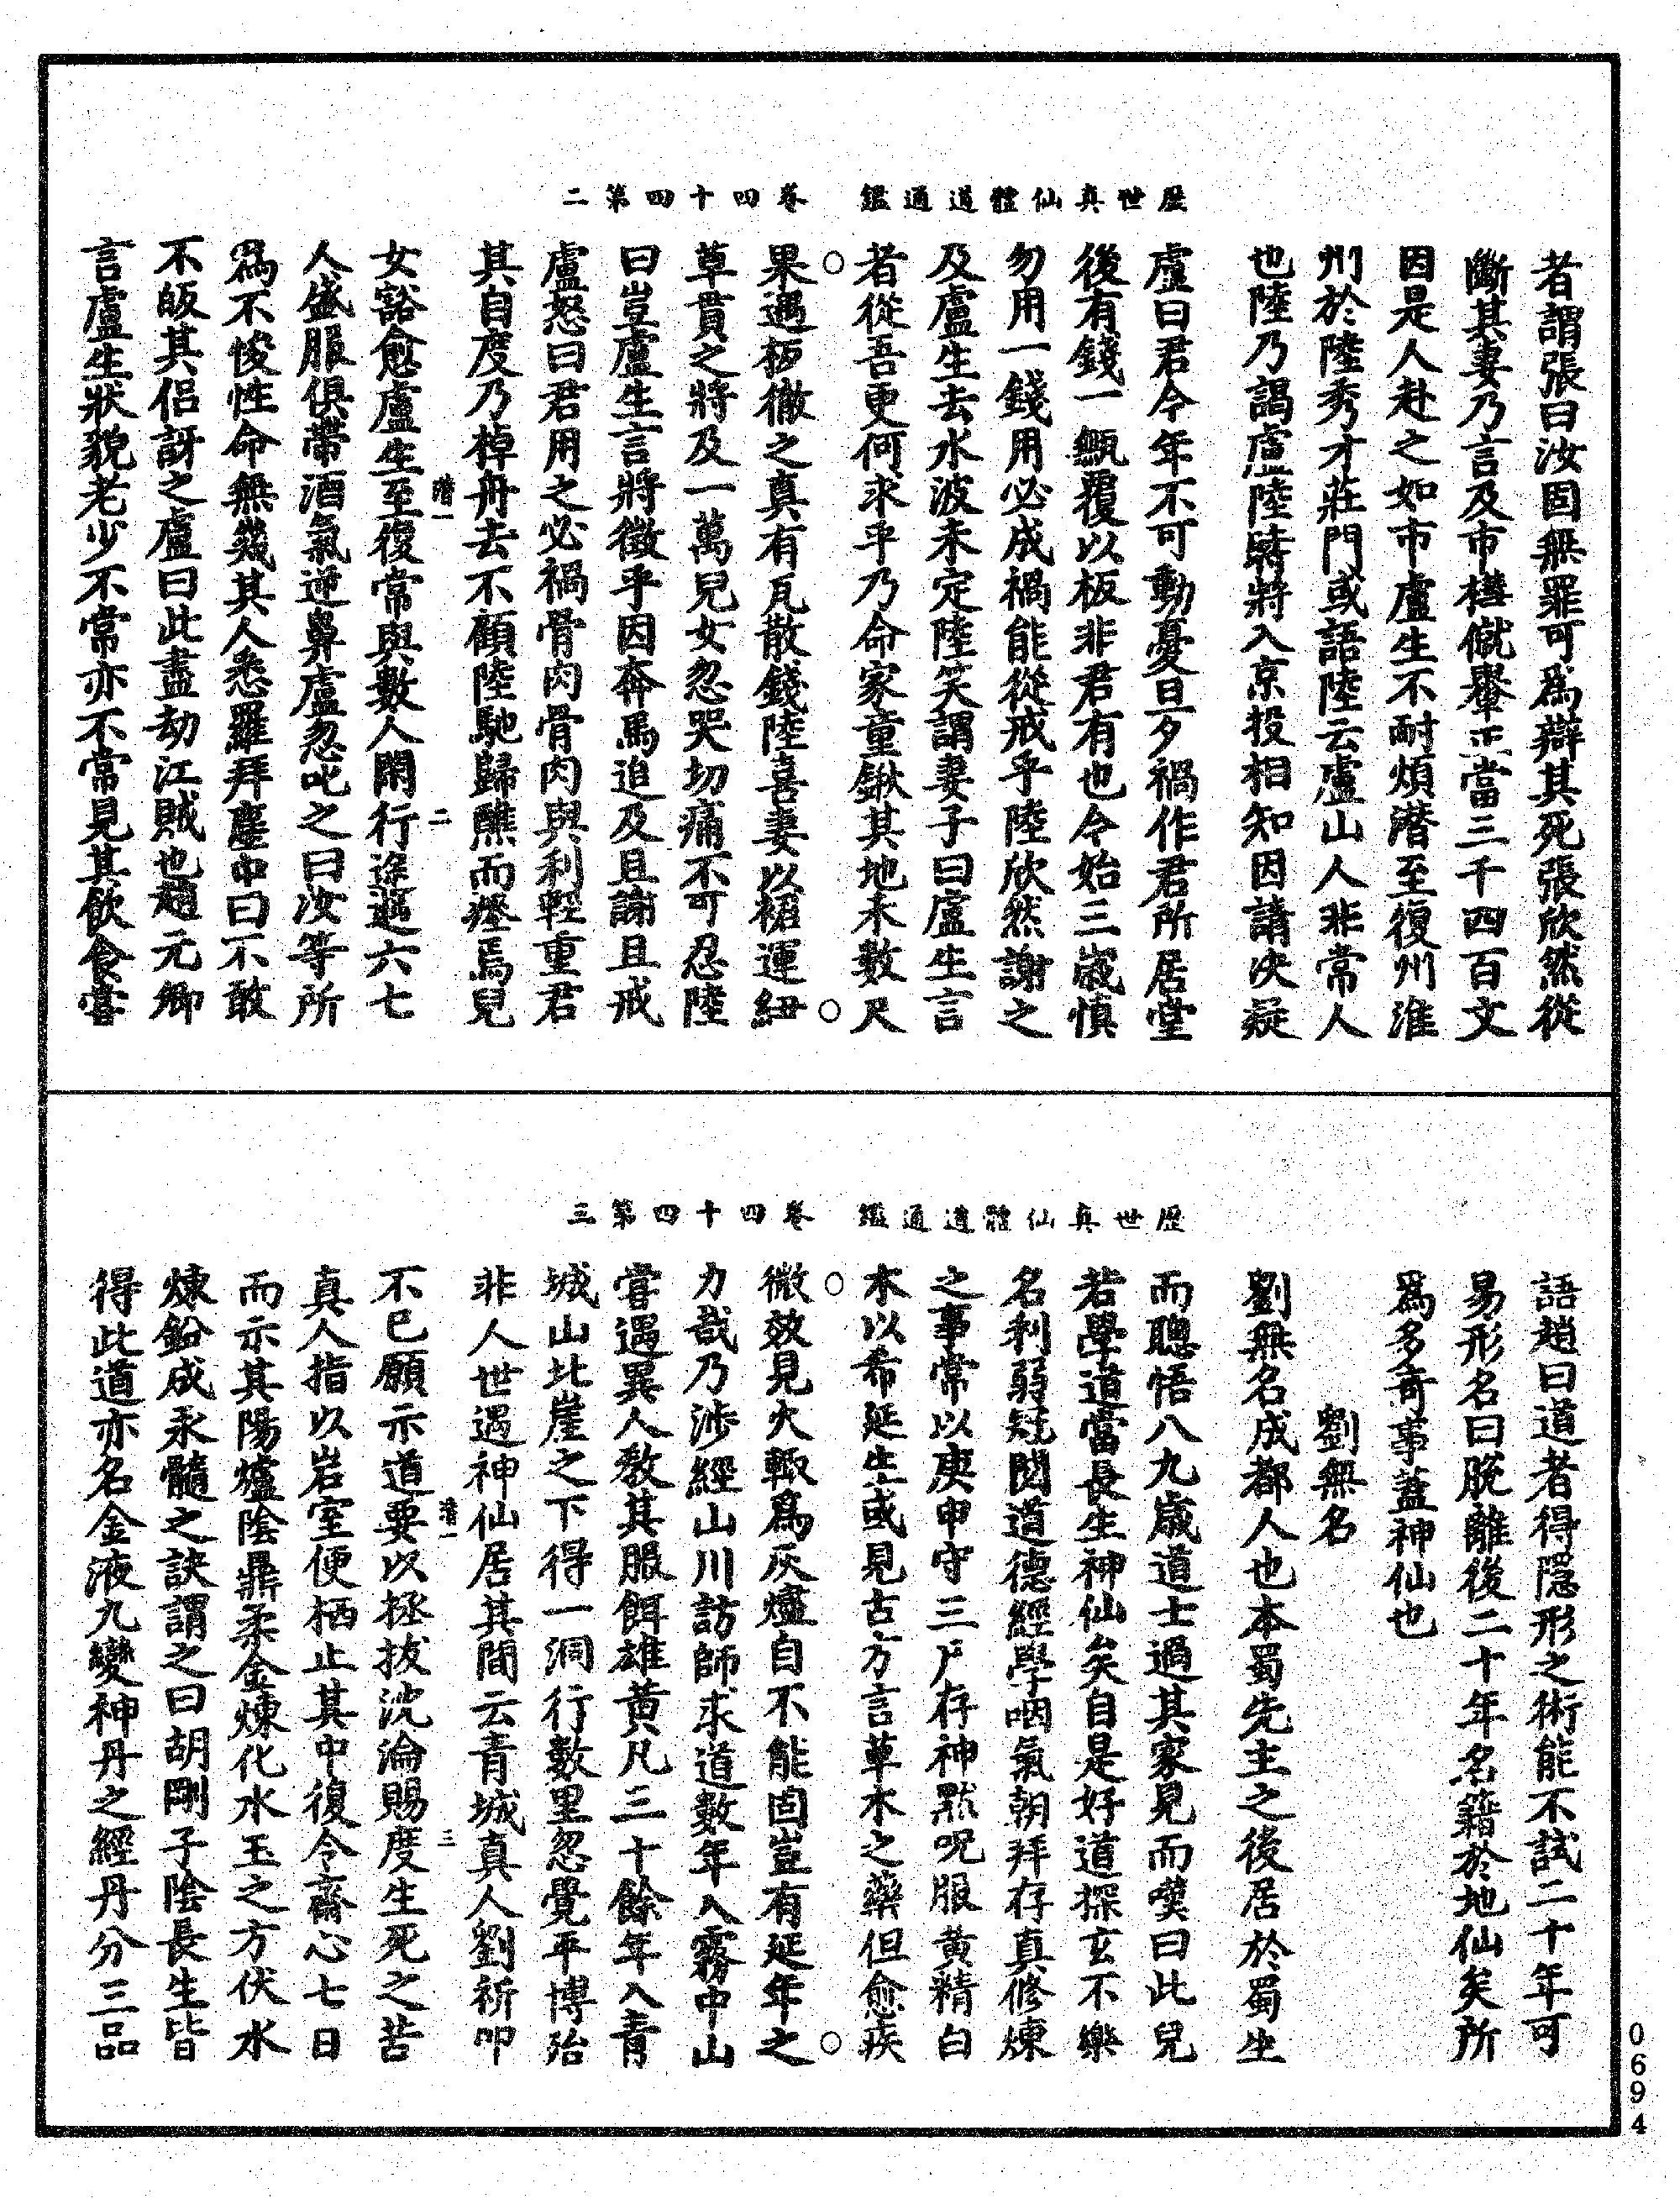 歷世真仙體道通鑑　卷四十四第二
者謂張曰汝固無罪可爲辯其死張欣然從
斷其妻乃言及市櫘僦轝正當三千四百文
因是人赴之如市盧生不耐煩潛至復州淮
州於陸秀才莊門或語陸云盧山人非常人
也陸乃謁盧陸時將入京投相知因請决疑
盧曰君今年不可動憂旦夕禍作君所居堂
後有錢一甀覆以板非君有也今始三歲慎
勿用一錢用必成禍能從戒乎陸欣然謝之
及盧生去水波未定陸笑謂妻子曰盧生言
者從吾更何求乎乃命家童鍬其地未數尺
果遇板徹之真有瓦散錢陸喜妻以裙運紐
草貫之將及一萬兒女忽哭切痛不可忍陸
曰豈盧生言將徵乎因奔馬追及且謝且戒
盧怒曰君用之必禍骨肉骨肉與利輕重君
其自度乃棹舟去不顧陸馳歸醮而瘞焉兒
女豁愈盧生至復常與數人閑行途遇六七
潛一　二
人盛服俱帶酒氣逆鼻盧忽叱之曰汝等所
爲不悛性命無幾其人悉羅拜塵中曰不敢
不敢其侣訝之盧曰此盡劫江賊也趙元卿
言盧生狀貌老少不常亦不常見其飲食嘗
歷世真仙體道通鑑　卷四十四第三
語趙曰道者得隱形之術能不試二十年可
易形名曰脫離後二十年名籍於地仙矣所
爲多奇事蓋神仙也
劉無名
劉無名成都人也本蜀先主之後居於蜀生
而聰悟八九歲道士過其家見而嘆曰此兒
若學道當長生神仙矣自是好道探玄不樂
名利弱冠閱道德經學咽氣朝拜存真修煉
之事常以庚申守三尸存神默呪服黃精白
朮以希延生或見古方言草木之藥但愈疾
微效見火輒爲灰燼自不能固豈有延年之
力哉乃涉經山川訪師求道數年入霧中山
嘗遇異人教其服餌雄黃凡三十餘年入青
城山北崖之下得一洞行數里忽覺平博殆
非人世遇神仙居其間云青城真人劉祈叩
不已願示道要以拯拔沈淪賜度生死之苦
潛一　三
真人指以岩室便栖止其中復令齋心七日
而示其陽爐陰鼎柔金煉化水玉之方伏水
煉鉛成永髓之訣謂之曰胡剛子陰長生皆
得此道亦名金液九變神丹之經丹分三品
0694